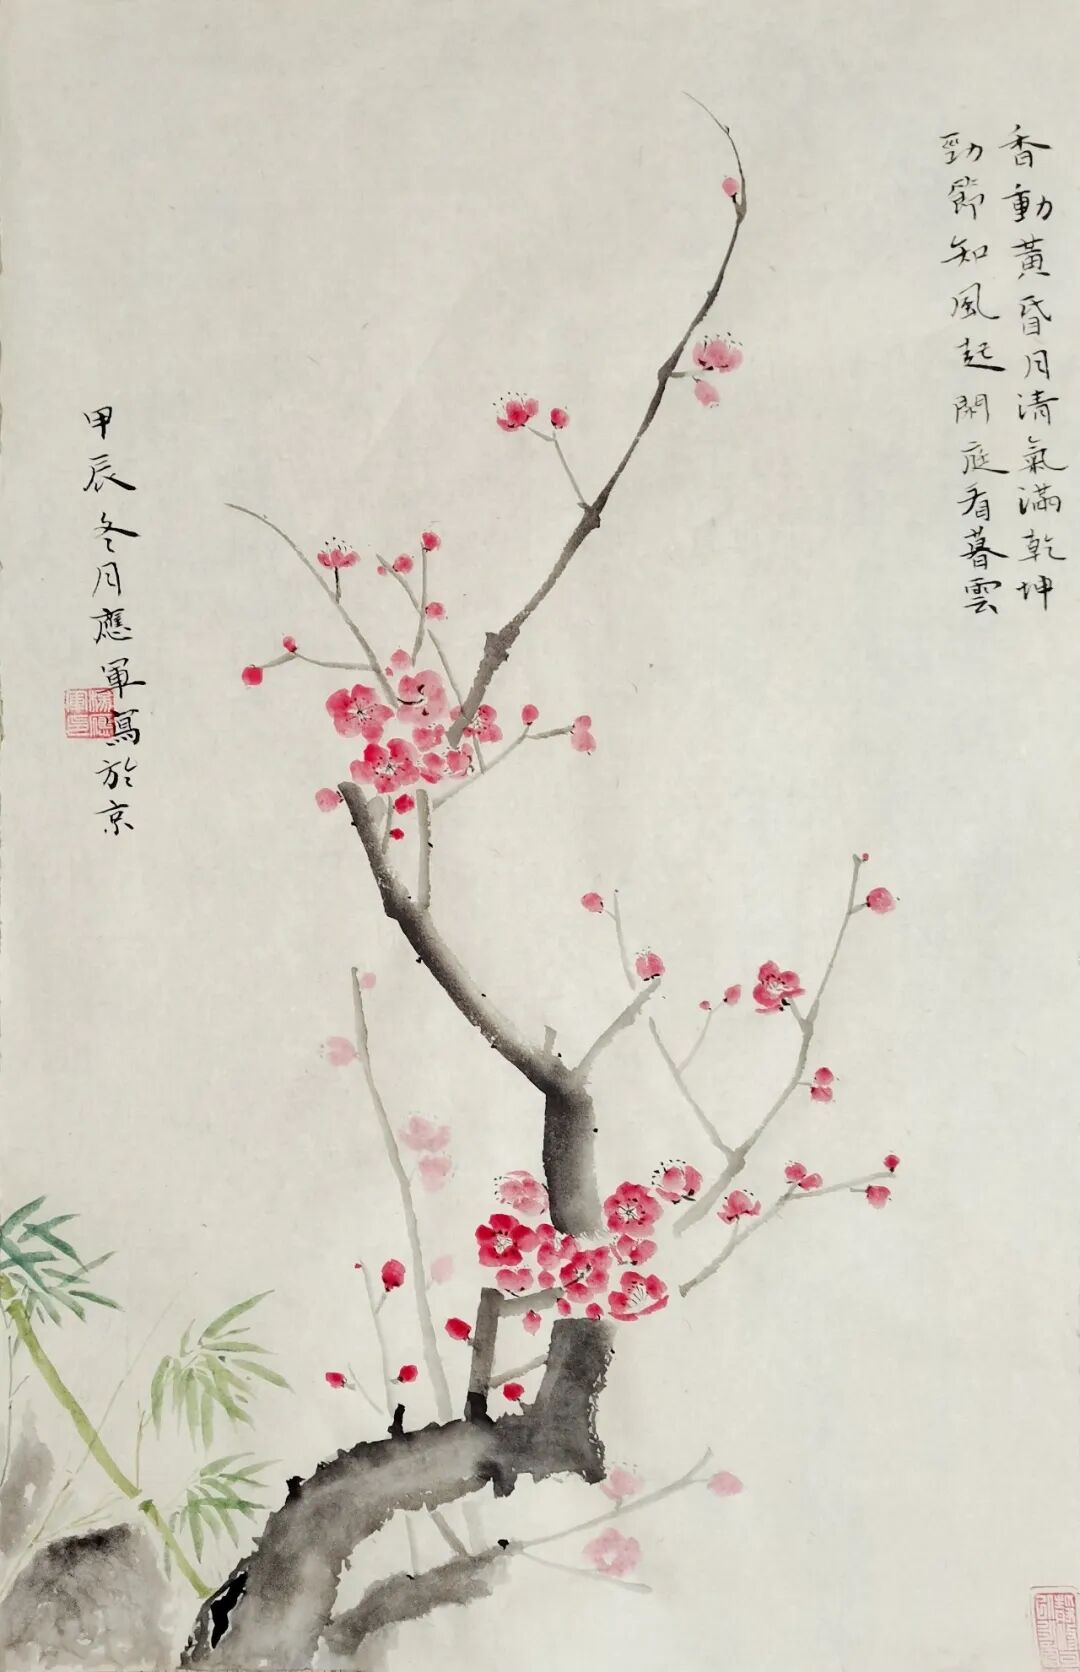 香動黃昏月清氣滿乾坤
勁節知風起閑庭看暮雲
甲辰冬月應軍寫於京